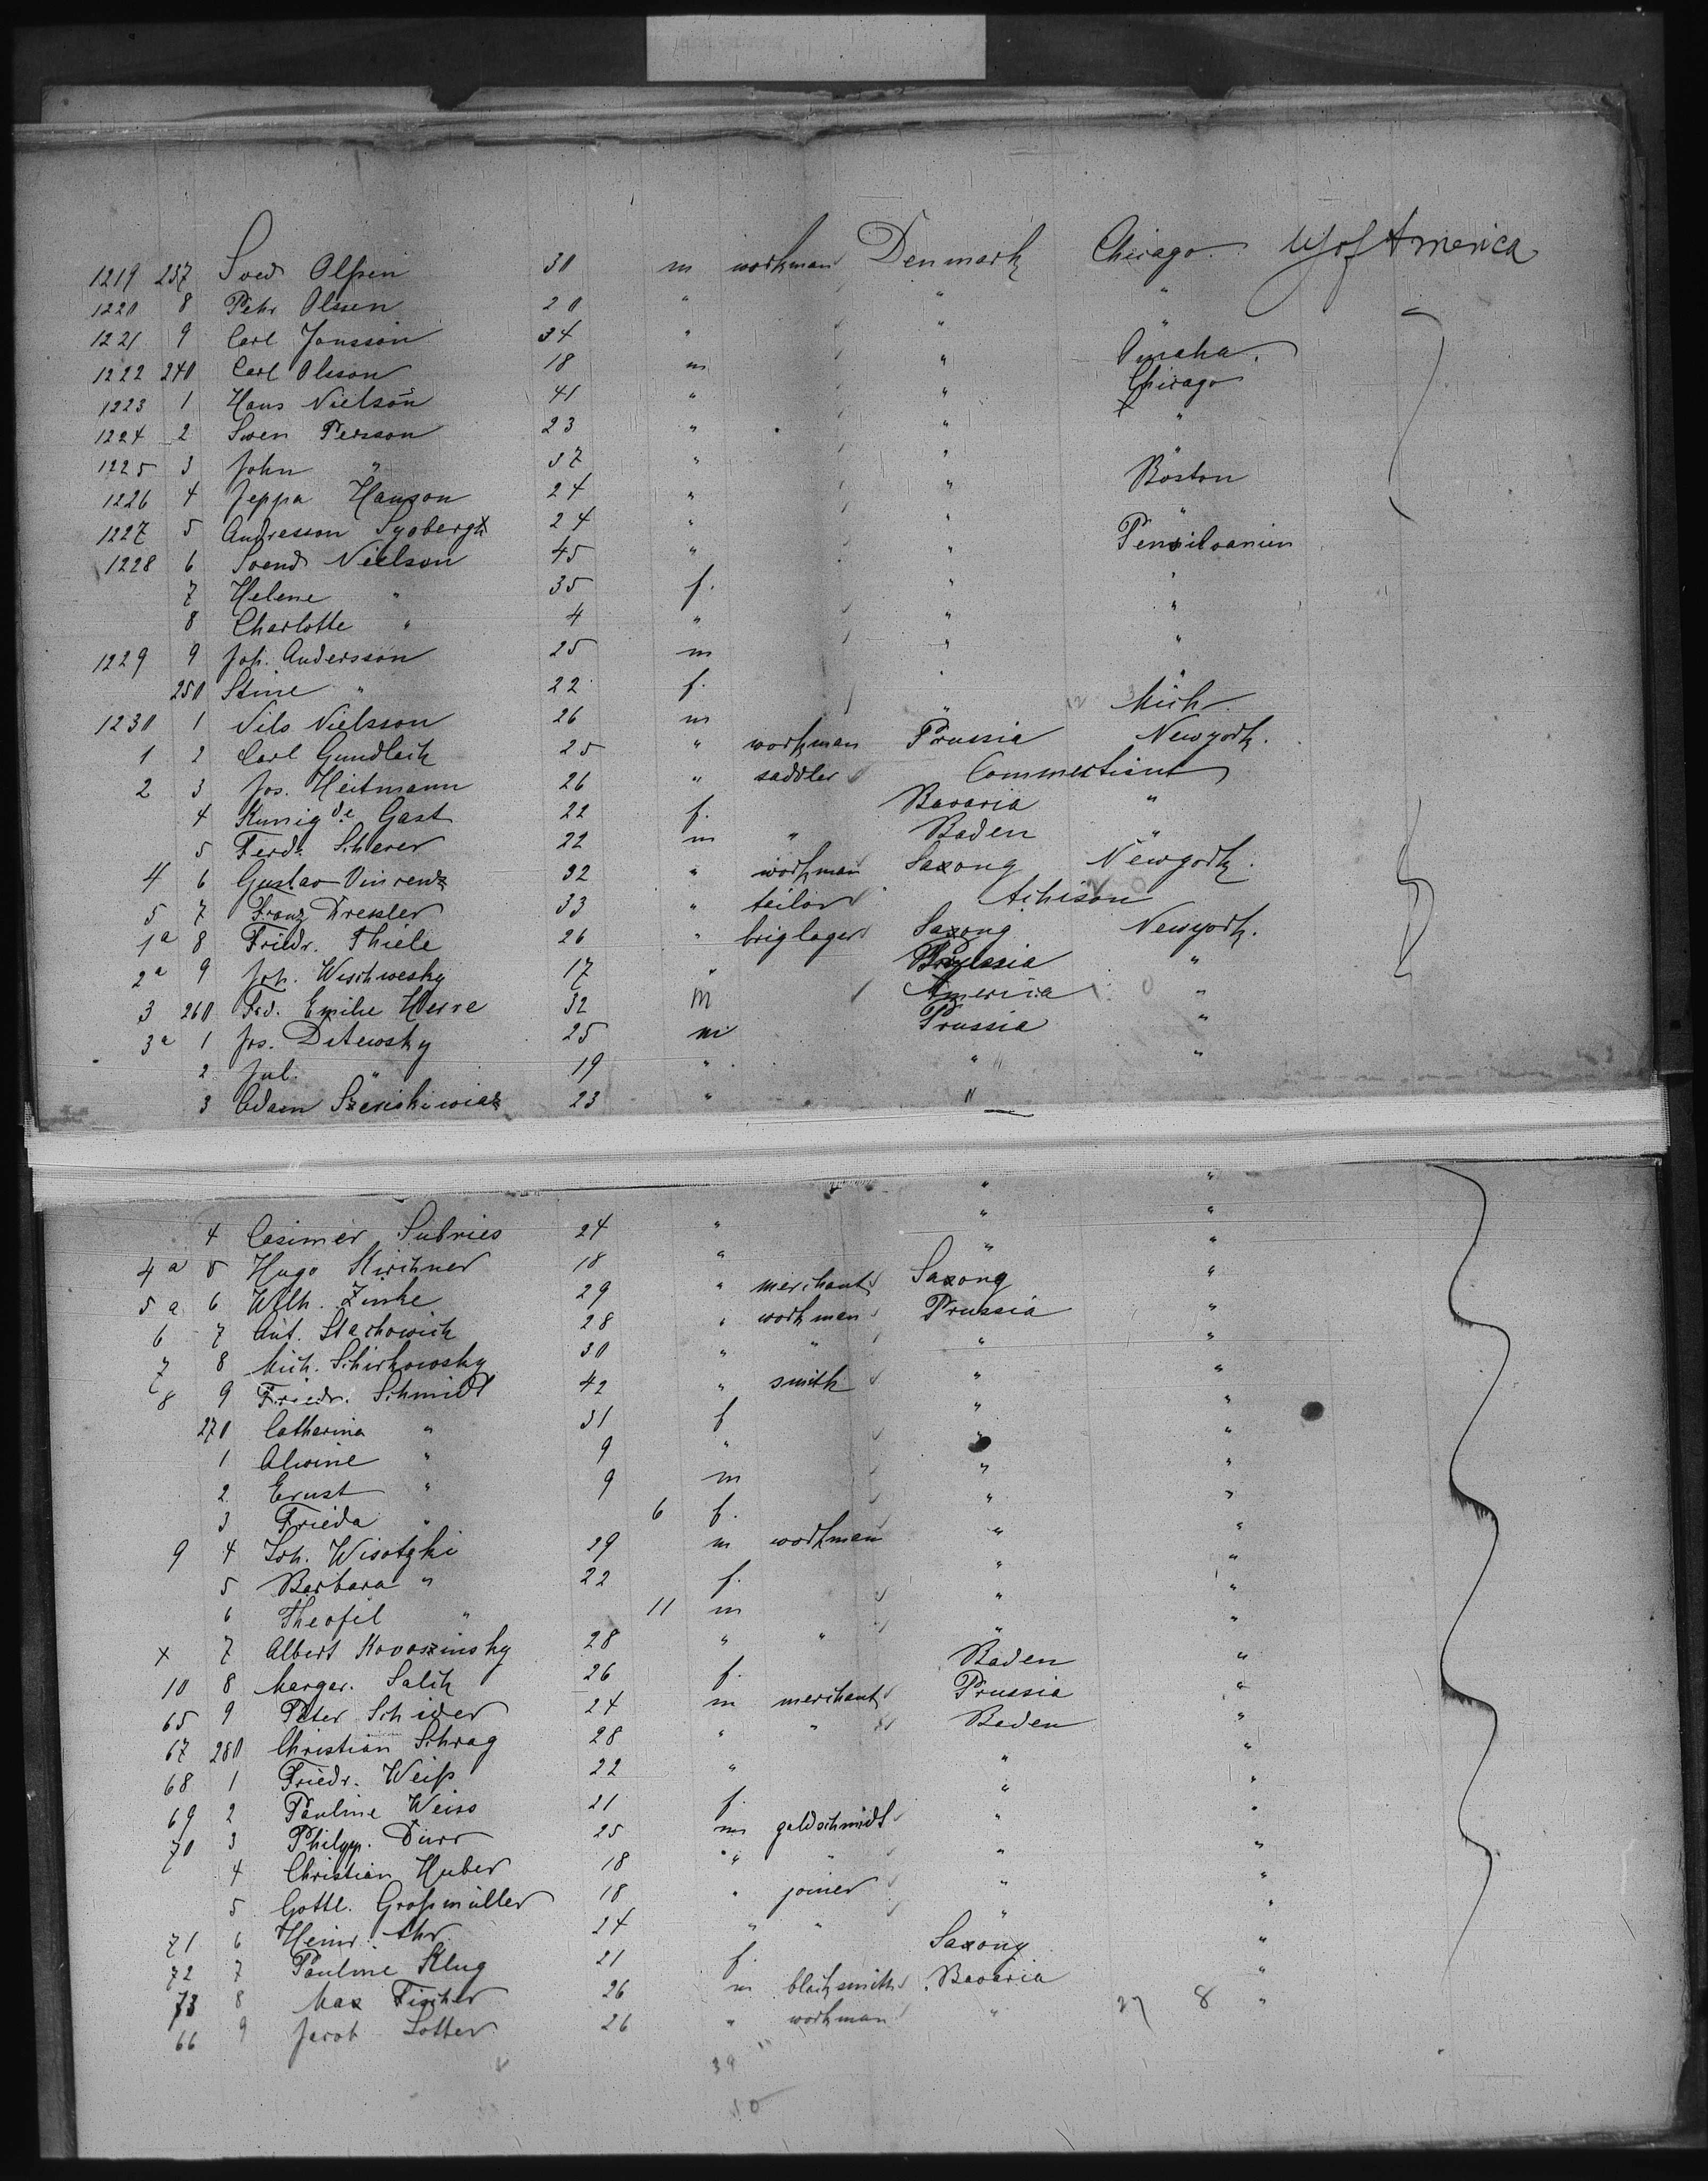 1219 237 Sved Olssen 30 m workman Denmark Chicago US of America
1220 8 Pehr Olssen 20 " " "
1221 9 Carl Jonsson 34 " " "
1222 240 Carl Olsson 18 m " Omaha.
1223 1 Hans Nielson 41 " " Chicago
1224 2 Swen Persson 23 " " "
1225 3 John " 37 " " "
1226 4 Jeppa Hanson 24 " " Boston
1227 5 Andresson Sygbergh 24 " " "
1228 6 Svend Nielson 45 " " Pensilvanien
7 Helene " 35 f. " "
8 Charlotte " 4 " " "
1229 9 Joh. Andersson 25 m " "
250 Stine " 22 f. " "
1230 1 Nils Nielsson 26 m " Mich.
1 2 Carl Gundlach 25 " workman Prussia Newyork.
2 3 Jos. Heitmann 26 " saddler Connectiunt
4 Kunigde Gast 22 f. Bavaria "
5 Ferd. Scherer 22 m " Baden "
4 6 Gustav Vinrenz 32 " workman Saxony Newyork.
5 7 Franz Dressler 33 " teilor Atchison
1a 8 Friedr. Thiele 26 " briglager Saxony Newyork.
2a 9 Joh. Wischwesky 17 " Prussia "
3 260 Frd. Emilie Herre 32 m America "
3a 1 Jos. Ditewsky 25 m Prussia "
2 Jul. " 19 " " "
3 Adam 23 " "
4 Casimer Subries 24 " " "
4a 5 Hugo Kirchner 18 " " "
5a 6 Wilh. Zinke 29 " merchant Saxony "
6 7 Ant. Stachowich 28 " workman Prussia "
7 8 Mich. Schirkowsky 30 " " " "
8 9 Friedr. Schmidt 42 " smith " "
270 Catharina " 31 f " "
1 Alwine " 9 " " "
2 Ernst " 9 m " "
3 Frieda " 6 f. " "
9 4 Joh. Wisotzki 29 m workman " "
5 Barbara " 22 f. " "
6 Theofil " 11 m " "
x 7 Albert Kovoszinsky 28 " " " "
10 8 Margar. Salik 26 f. Baden "
65 9 Peter Schider 24 m merchant Prussia "
67 280 Christian Schrag 28 " " Baden "
68 1 Friedr. Weiß 22 " " "
69 2 Pauline Weiss 21 f. " "
70 3 Philipp. Dürr 25 m goldschmidt " "
4 Christian Huber 18 " " " "
5 Gottl. Großmüller 18 " joiner " "
71 6 Heinr. Ahr. 24 " " " "
72 7 Pauline Klug 21 f. Saxony "
73 8 Max Fischer 26 m blacksmith Bavaria "
66 9 Jacob Lotter 26 " workman " 27 8 "
39
10